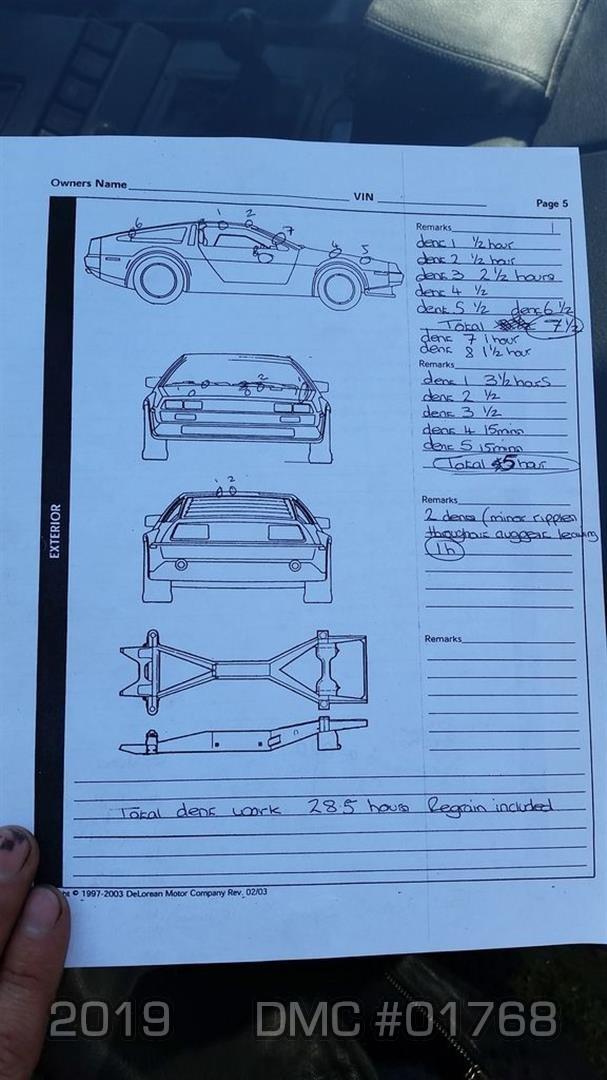 Owners Name VIN
Page 5
1 2 7 6 4 5 3 8
Remarks 1
dent 1 ½ hour
dent 2 ½ hour
dent 3 2 ½ hours
dent 4 ½
dent 5 ½ dent 6 ½
Total 7 ½
dent 7 1 hour
dent 8 1 ½ hour
Remarks
dent 1 3½ hours
dent 2 ½
dent 3 ½
dent 4 15mins
dent 5 15mins
Total 5 hour
1 2
EXTERIOR
Remarks
2 dents (minor ripples
throughout suggest leaving
1h
Remarks
Total dent work 28.5 hours Regrain included
© 1997-2003 DeLorean Motor Company Rev. 02/03
2019 DMC #01768